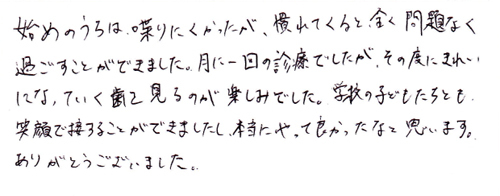 始めのうちは、喋りにくかったが、慣れてくると全く問題なく
過ごすことができました。月に一回の診療でしたが、その度にきれい
になっていく歯を見るのが楽しみでした。学校の子どもたちとも
笑顔で接することができましたし、本当にやって良かったなと思います。
ありがとうございました。